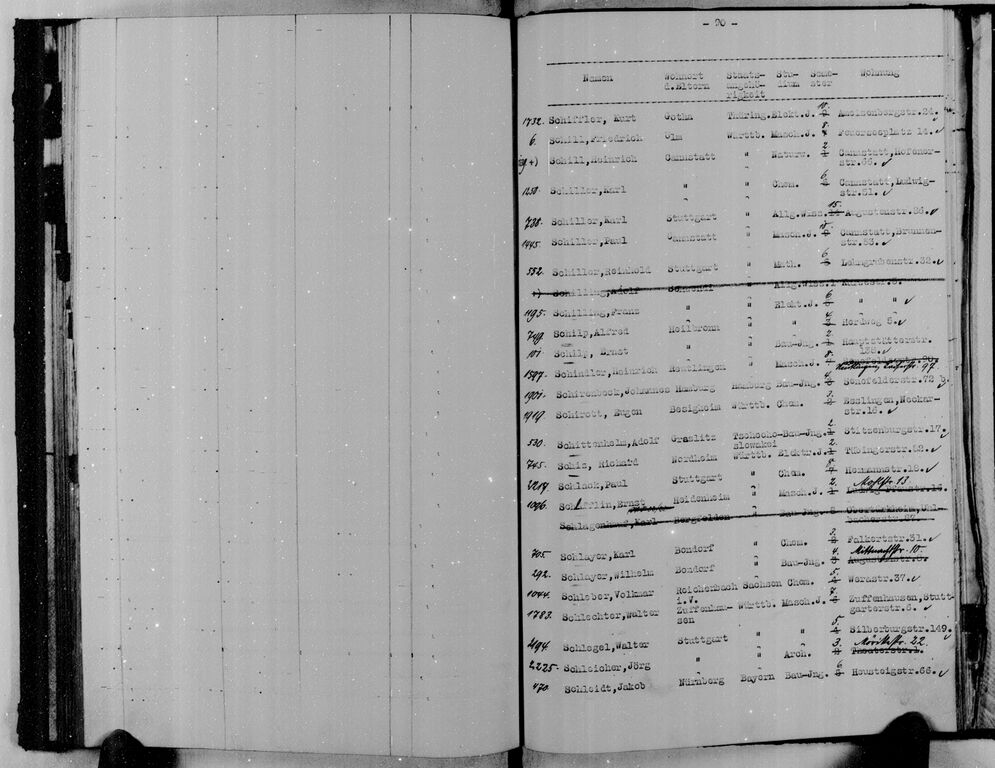 - 70 -
Namen Wohnort Staats- Stu- Seme- Wohnung
d.Eltern angehö- dium ster
rigkeit
1732. Schiffler, Kurt Gotha Thüring. Elekt.J. 10. Ameisenbergstr.24.
6. Schill, Friedrich Ulm Württb. Masch.J. 8. Feuerseeplatz 14.
+) Schill, Heinrich Cannstatt " Naturw. 2. Cannstatt, Hofener-
str.66.
1250. Schiller, Karl " " Chem. 6. Cannstatt, Ludwig-
str.51.
738. Schiller, Karl Stuttgart " Allg.Wiss. 15. Augustenstr.36.
1445. Schiller, Paul Cannstatt " Masch.J. Cannstatt, Brunnen-
str.53.
552. Schiller, Reinhold Stuttgart " Math. 6. Lehngrubenstr.32.
+) Schilling, Adolf " Allg.Wiss.
1195. Schilling, Franz " " Elekt.J. 6. " "
749. Schilp, Alfred Heilbronn " " 4. Herdweg
101. Schilp, Ernst " " Bau-Jng. 2. Hauptstätterstr.
1397. Schindler, Heinrich Reutlingen " Masch.J. 8. 97
1901. Schirenbeck, Johannes Hamburg Hamberg Bau-Jng. 4. Senefelderstr.72 b.
1919. Schirott, Eugen Besigheim Württb. Chem. 3. Esslingen, Neckar-
str.16.
530. Schittenhelm, Adolf Graslitz Tschecho- Bau-Jng. 2. Stitzenburgstr.17.
slowakei
745. Schiz, Richard Nordheim Württb. Elektr.J. 2. Tübingerstr.
2217. Schlack, Paul Stuttgart " Chem. 8. Hermannstr.18.
1096. Schäfflin, Ernst Heidenheim " Masch.J. 2. Mohlstr. 13
Schlagenhauf, Karl Bergfelden " Bau-Jng. Obertürkheim, Uhl-
bacherstr.
705. Schlayer, Karl Bondorf " Chem. Falkertstr.31.
292. Schlayer, Wilhelm Bondorf " Bau-Jng. 4. Mittnachtstr. 10.
1044. Schleber, Volkmar Reichenbach Sachsen Chem. 5. Werastr.37.
i.V.
1783. Schlechter, Walter Zuffenhau- Württb. Masch.J. 7. Zuffenhausen, Stutt-
sen garterstr.6.
494. Schlegel, Walter Stuttgart " " 5. Silberburgstr.149.
2225. Schleicher, Jörg " " Arch. 3. Mörikestr. 22
470. Schleidt, Jakob Nürnberg Bayern Bau-Jng. 6. Heusteigstr.66.